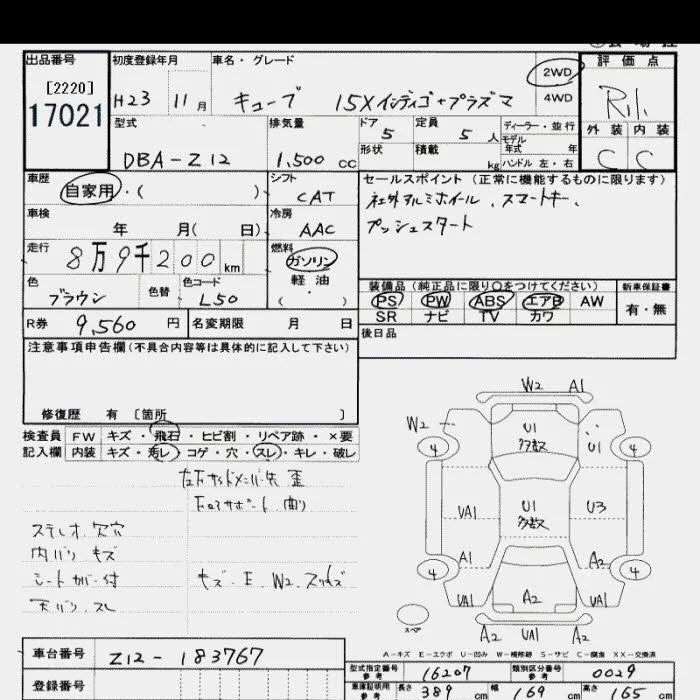 出品番号 初度登録年月 車名・グレード 評価点
[2220]
17021
H23 11月 キューブ 15Xインディゴ+プラズマ 2WD 4WD
外装 内装
C C
型式 排気量 ドア 定員 ディーラー・並行
5 5人 モデル年式 年
DBA-Z12 1,500cc 形状 積載 kg ハンドル 左・右
車歴 シフト セールスポイント (正常に機能するものに限ります)
自家用・( ) CAT 社外アルミホイール、スマートキー、
車検 冷房 プッシュスタート
年 月( 日) AAC
走行 燃料
8万9千200km ガソリン
軽油
( )
色 色替 色コード 装備品 (純正品に限り○をつけてください) 新車保証書
ブラウン L50 PS PW ABS エアB AW 有・無
SR ナビ TV カワ
R券 9,560円 名変期限 月 日 後日品
注意事項申告欄(不具合内容等は具体的に記入して下さい)
修復歴 有 [箇所 ]
検査員 FW キズ・飛石・ヒビ割・リペア跡・×要
記入欄 内装 キズ・汚レ・コゲ・穴・スレ・キレ・破レ
ステレオ欠穴
内バリ キズ
シートカバー付
天バリ、スレ
キズ・E、W2、スリキズ
W2 A1
W2
U1 多数
U1
4 4
UA1 U1 多数 U3
A1 A2
4 4
UA1 A2 UA1
スペア
A2 UA1 A2
A-キズ E-エクボ U-凹み W-補修跡 S-サビ C-腐食 XX-交換済
車台番号 Z12-183767
登録番号
型式指定番号 参考 16207 類別区分番号 参考 0029
車庫証明用 参考 長さ 389 幅 169 高さ 165